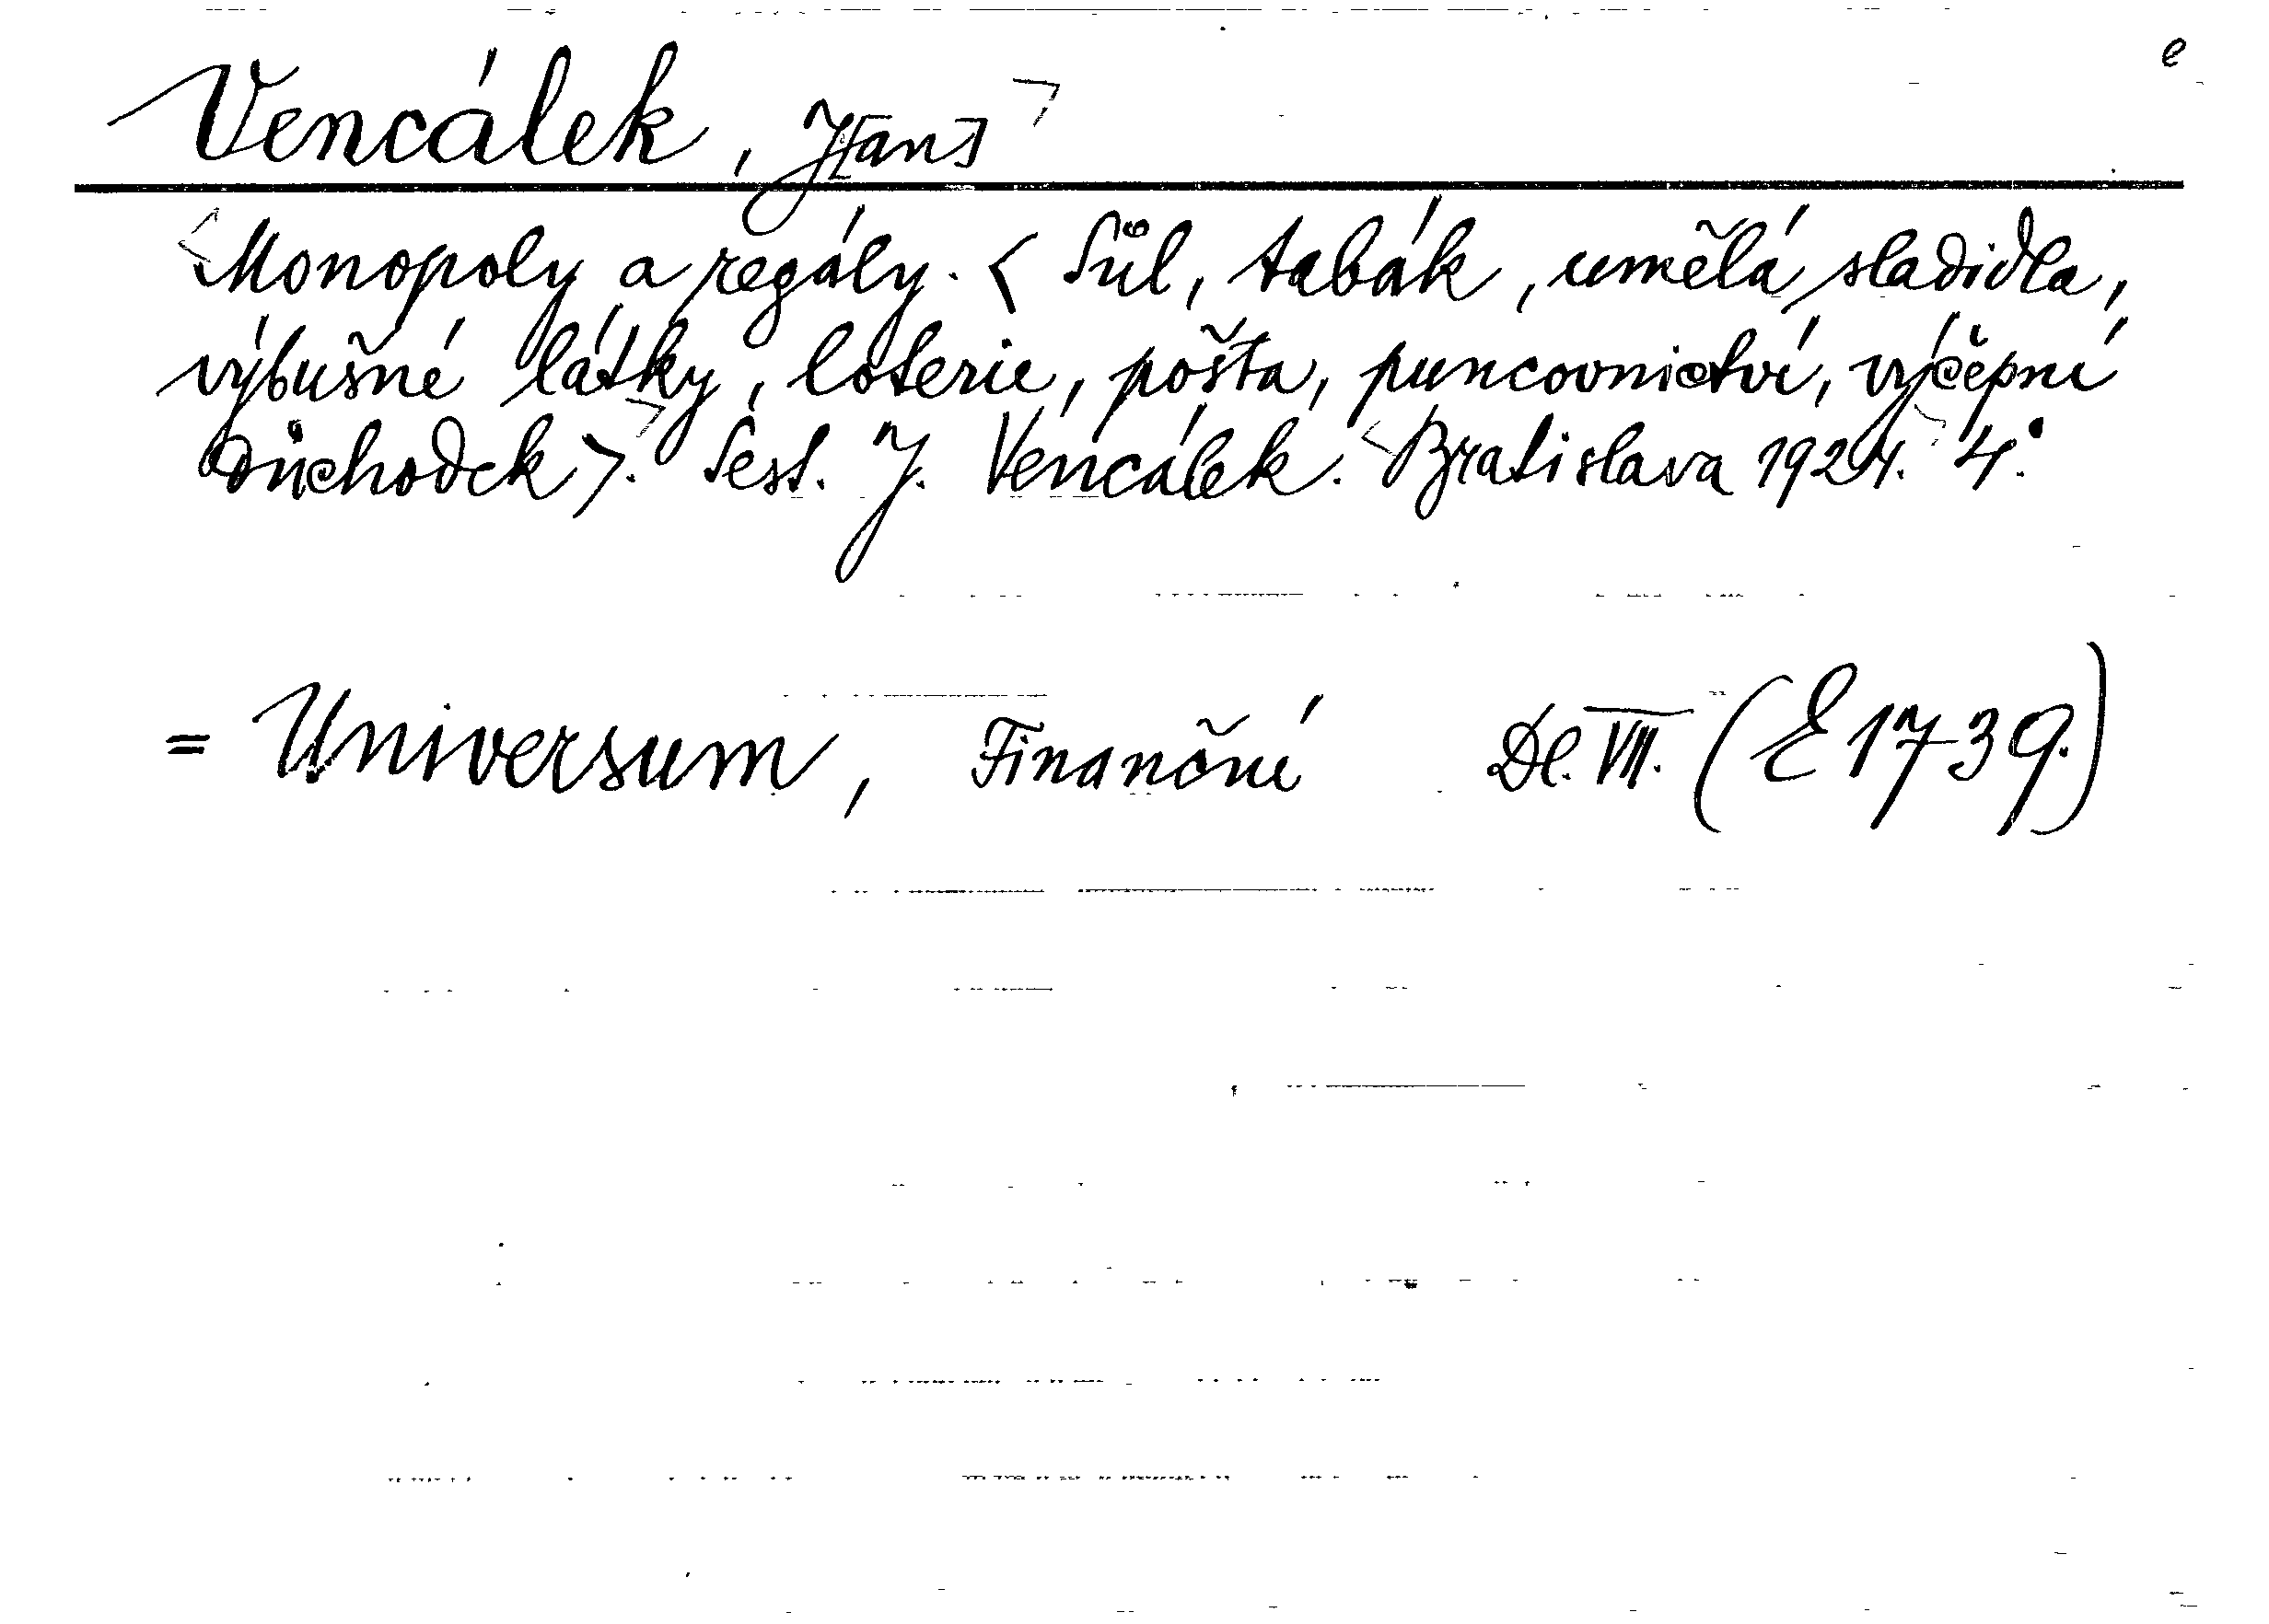 e
Vencálek, J[an]
Monopoly a regály. < Sůl, tabák, umělá sladidla,
výbušné látky, loterie, pošta, puncovnictví, výčepní
důchodek >. Sest. J. Vencálek. Bratislava 1924. 4°.
= Universum, Finanční Dl. VII. (E 1739.)